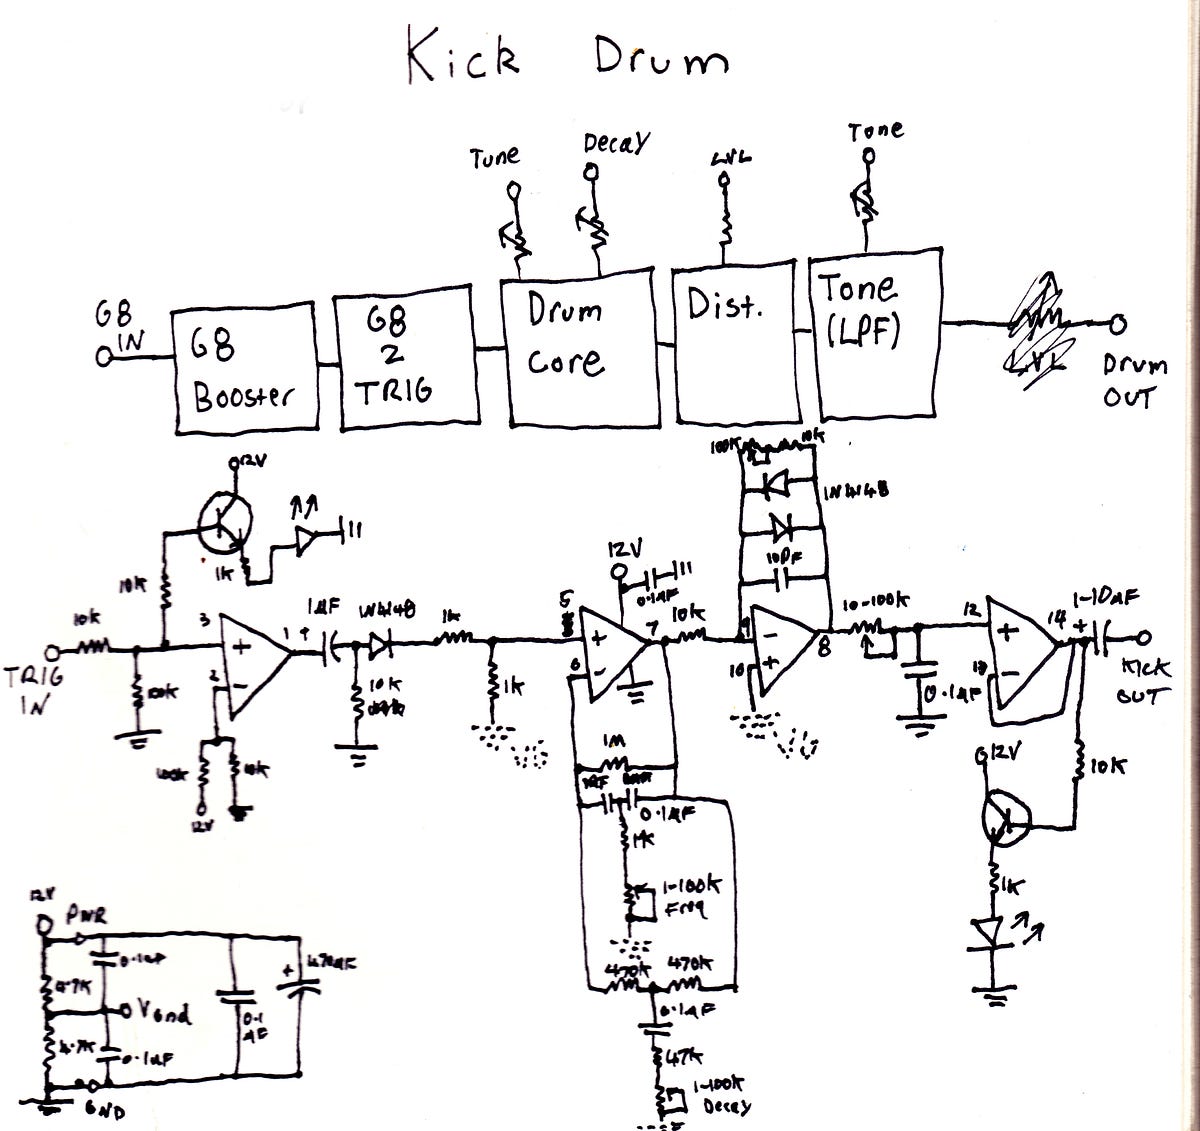 Kick Drum
Tune
Decay
LVL
Tone
G8
IN
G8
Booster
G8
2
TRIG
Drum
Core
Dist.
Tone
(LPF)
LVL
Drum
OUT
12V
1k
10k
10k
TRIG
IN
100k
3
2
1
100k
10k
12V
1µF
+
1N4148
10k
1k
1k
VG
12V
0.1µF
5
6
7
10k
1M
0.1µF
1k
1-100k
Freq
470k
470k
0.1µF
47k
1-100k
Decay
100k
10k
1N4148
10PF
9
10
8
VG
10-100k
0.1µF
12
13
14
+
1-10µF
Kick
OUT
10k
12V
1k
12V
PWR
0.1µF
4.7K
VGnd
4.7K
0.1µF
GND
0.1
µF
+
470µF